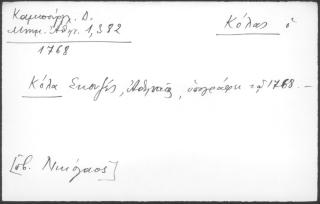 Καμπούρογλ. Δ.
Μνημ. Αθην. 1, 382
Κόλας ὁ
1768
Κόλα Σκουζές, Ἀθηναῖος, ὑπογράφει τῷ 1768. —
[πβ. Νικόλαος]